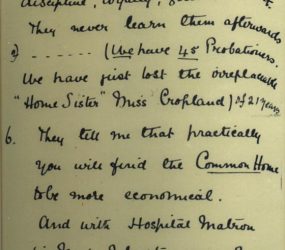 discipline, loyalty,
They never learn them afterwards
a) - - - - - - (We have 45 Probationers.
We have just lost the irreplaceable
"Home Sister" Miss Crofland) of 21 years
6. They tell me that practically
you will find the Common Home
to be more economical.
And with Hospital Matron